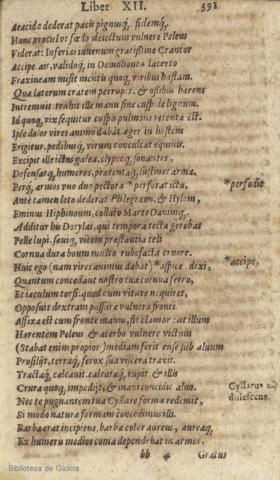 Liber XII. 391
Aeacidae dederat pacis pignusq́; fidemq́;.
Hunc procul vt foedo disiectum vulnere Peleus
Viderat: Inferias iuuenum gratissime Crantor
Accipe ait, validoq́; in Demoleonta lacerto
Fraxineam misit mentis quoq; viribus hastam.
Quae laterum cratem perrupit, & ossibus haerens
Intremuit: trahit ille manu sine cuspide lignum.
Id quoq; vix sequitur cuspis pulmone retenta est.
Ipse dolor vires animo dabat. aeger in hostem
Erigitur. pedibusq́; virum conculcat equinis.
Excipit ille ictus galea, clypeoq́; sonantes,
Defensatq́; humeros, praetentaq́; sustinet arma.
Perq́; armos vno duo pectora * perforat ictu,
*perfodit
Ante tamen leto dederat Phlegraeon, & Hylem,
Eminus: Hiphinoum, collato Marte Daninq́;.
Additur his Dorylas, qui tempora tecta gerebat
Pelle lupi. saeuiq́; vicem praestantia teli
Cornua dura boum multo rubefacta cruore.
Huic ego (nam vires animus dabat) *aspice. dixi,
*accipe,
Quantum concedant nostro tua cornua ferro,
Et iaculum torsi: quod cum vitare nequiret,
Opposuit dextram passurae vulnera fronti.
Affixa est cum fronte manus, fit clamor: at illum
Haerentem Peleus & acerbo vulnere victum
(Stabat enim propior) mediam ferit ense sub aluum
Prosilijt, terraq́; ferox sua viscera traxit.
Tractaq́; calcauit. calcataq́; rupit & illis
Crura quoq; impedijt, & inani concidit aluo.
Nec te pugnantem tua Cyllare forma redemit,
Si modo naturae formam concedimus illi.
Barba erat incipiens, barbae color aureus, aureaq́;
Ex humeris medios coma dependebat in armos.
bb 4 Gratus
Biblioteca de Galicia